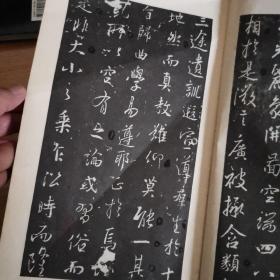 麗象開圖空端四
相於是微言廣被拯含類
三途遺訓遐宣導群生於十
地然而真教難仰莫能一其
旨歸曲學易遵邪正於焉
紛糾所以空有之論或習俗而
是非大小之乘乍沿時而隆